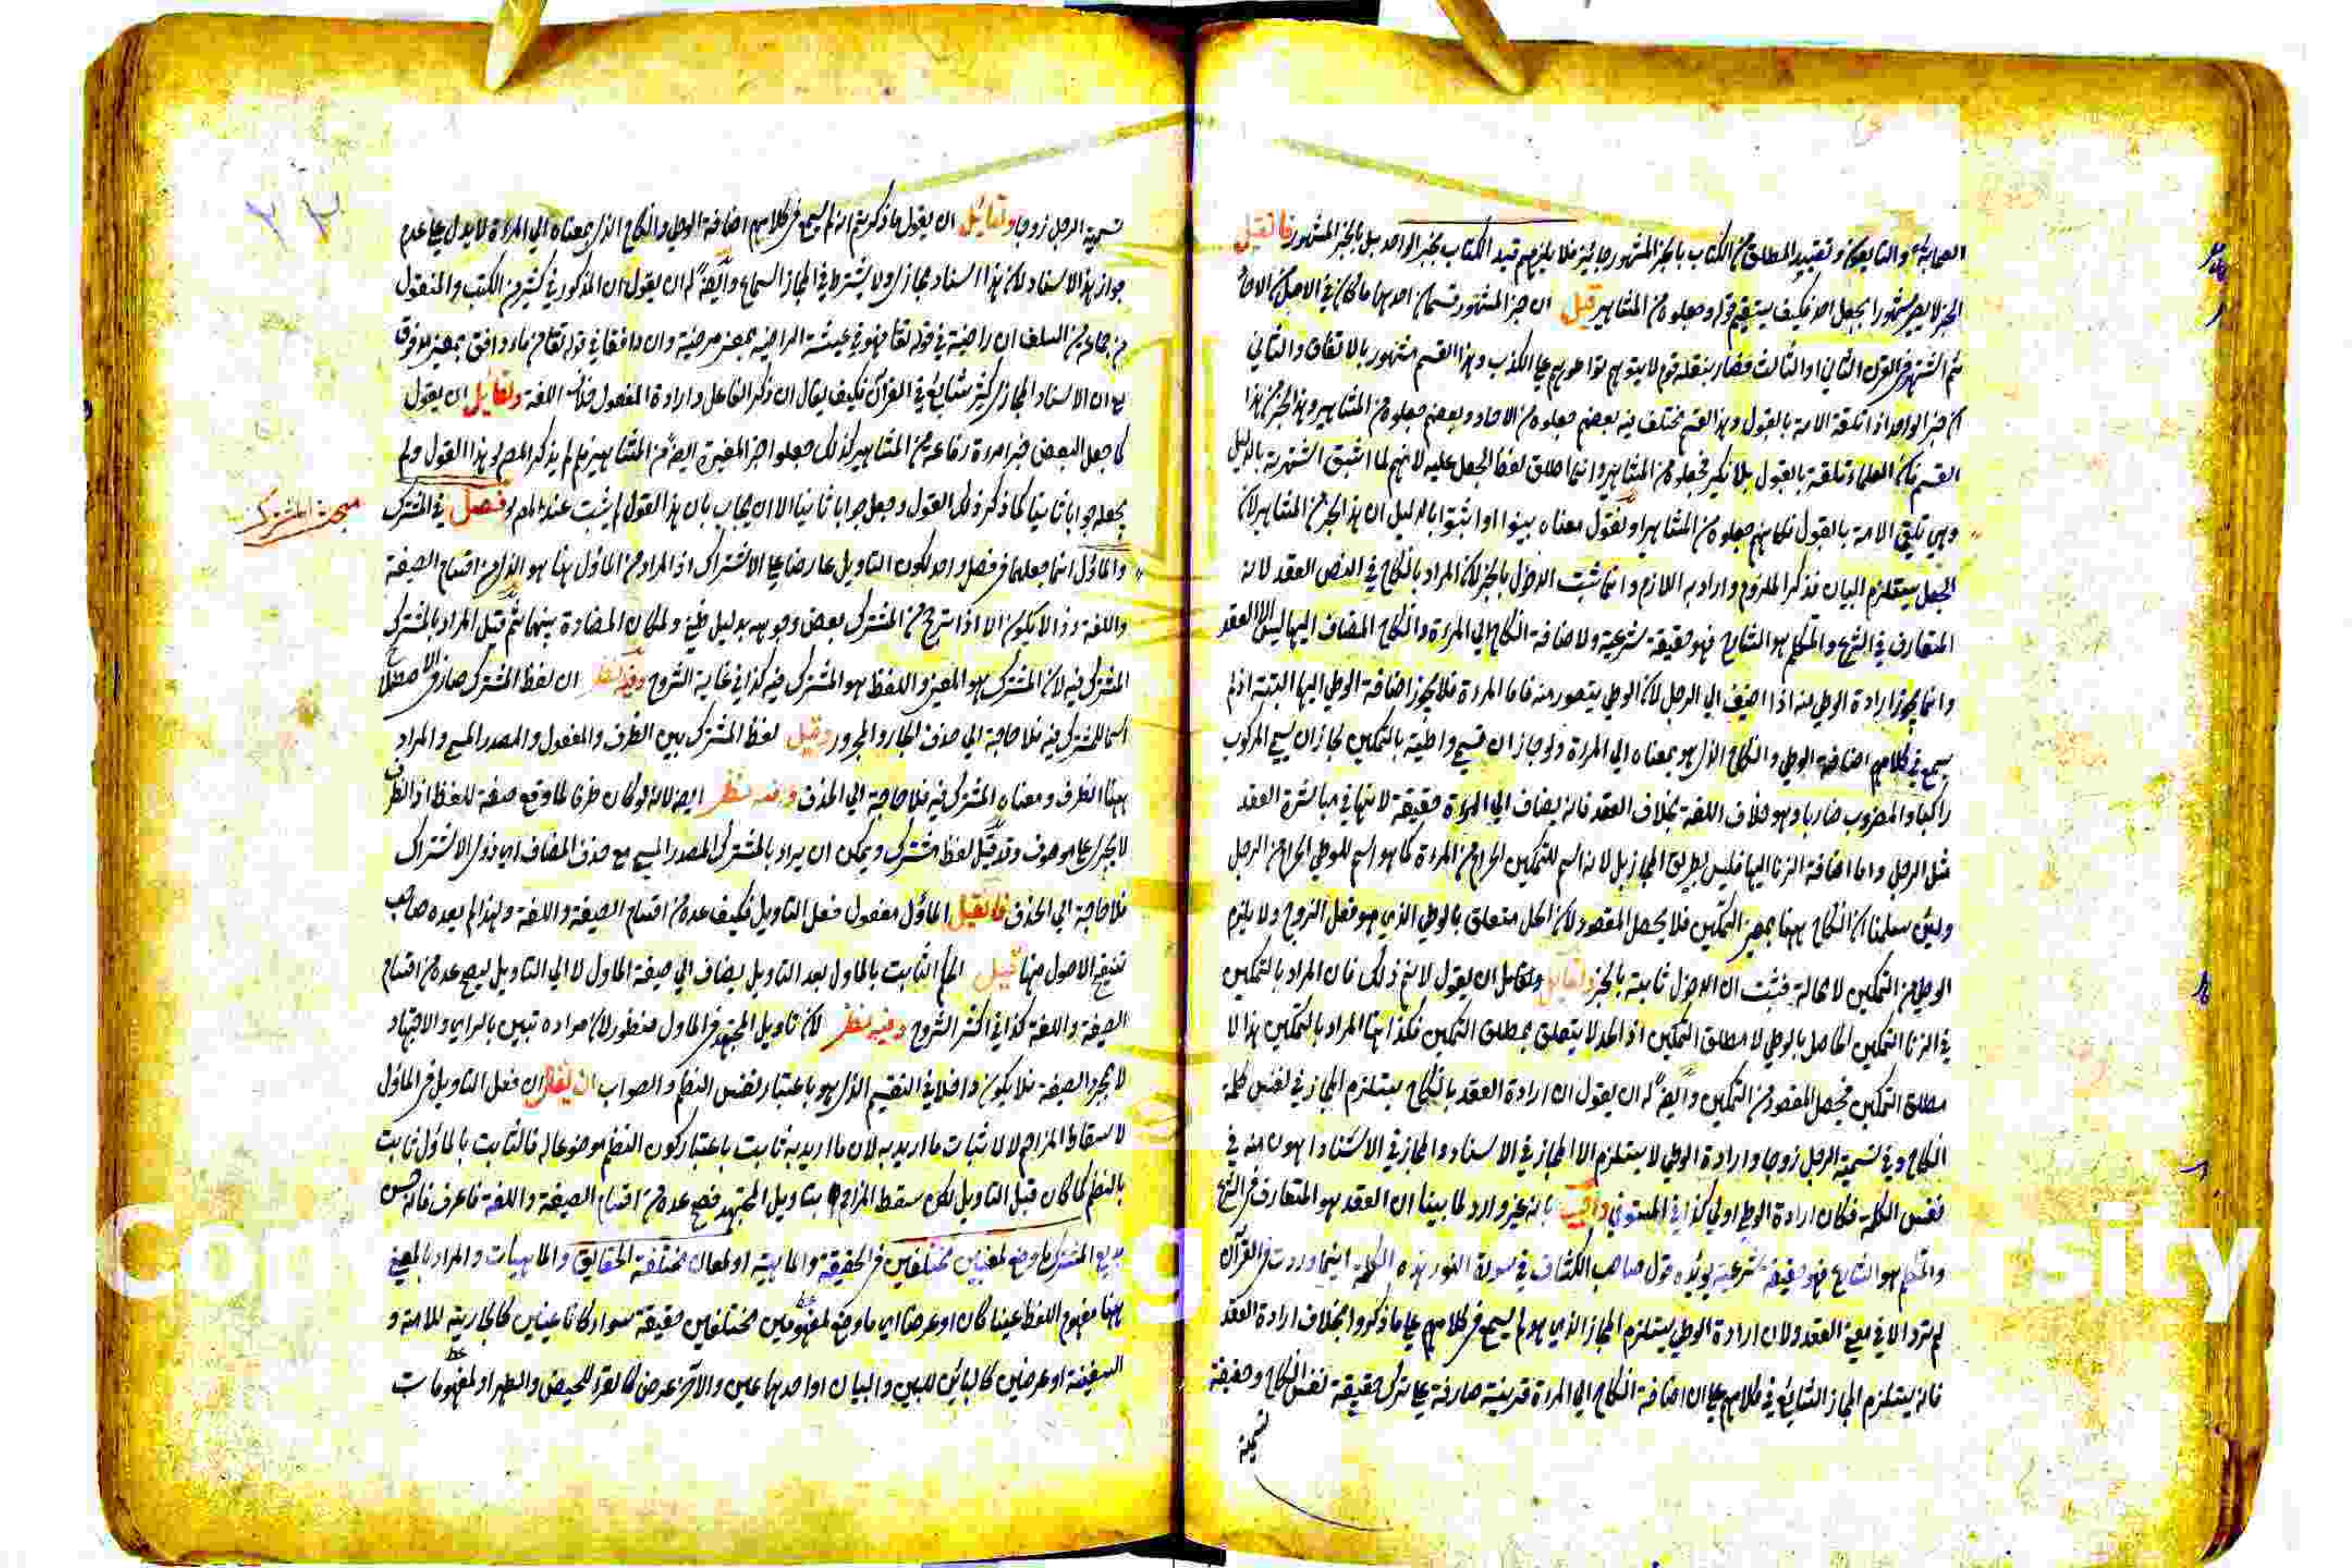 الصحابة والتابعين وتقييد المطلق من الكتاب بالخبر المشهور جائز فلا يلزم تقييد الكتاب بخبر الواحد بل بالخبر المشهور فان قيل
الخبر لا يصير مشهورا بجعل احد فكيف يستقيم قوله وجعلوه من المشاهير قيل ان خبر المشهور قسمان احدهما ما كان في الاصل من الآحاد
ثم اشتهر في القرن الثاني او الثالث فصار ينقله قوم لا يتوهم تواطؤهم على الكذب وهذا القسم مشهور بالاتفاق والثاني
ان خبر الواحد اذا تلقته الامة بالقبول وهذا القسم مختلف فيه بعضهم جعلوه من الآحاد وبعضهم جعلوه من المشاهير وهذا الخبر من هذا
القسم فان العلماء تلقته بالقبول بلا نكير فجعلوه من المشاهير وانما اطلق لفظ الجعل عليه لانهم لما اثبتوا الشهرة بالدليل
وهي تلقي الامة بالقبول فكانهم جعلوه من المشاهير او نقول معناه بينوا او اثبتوا بالدليل ان هذا الخبر من المشاهير لان
الجعل يستلزم البيان فذكر الملزوم واراد به اللازم وانما ثبت الدخول بالخبر لان المراد بالنكاح في النص العقد لانه
المتعارف في الشرع والتكلم هو الشائع فهو حقيقة شرعية ولاضافة النكاح الى المرءة والنكاح المضاف اليها ليس الا العقد
وانما يجوز ارادة الوطي منه اذا اضيف الى الرجل لان الوطي يتصور منه فاما المرءة فلا يجوز اضافة الوطي اليها البتة اذ لم
يسمع في كلامهم اضافة الوطي والنكاح الذي هو بمعناه الى المرءة ولو جاز ان تسمى واطئة بالتمكين لجاز ان يسمى المركوب
راكبا والمضروب ضاربا وهو خلاف اللغة بخلاف العقد فانه يضاف الى المرءة حقيقة لانها في مباشرة العقد
مثل الرجل واما اضافة الزنا اليها فليس بطريق المجاز بل لانه اسم للتمكين الحرام من المرءة كما هو اسم للوطي الحرام من الرجل
ولئن سلمنا ان النكاح ههنا بمعنى التمكين فلا يحصل المقصود لان الحل متعلق بالوطي الذي هو فعل الزوج ولا يلزم
الوطي من التمكين لا محالة فثبت ان الدخول ثابتة بالخبر ولقايل ولقايل ان يقول لا نم ذلك فان المراد بالتمكين
في الزنا التمكين الحاصل بالوطي لا مطلق التمكين اذ الحد لا يتعلق بمطلق التمكين فكذا هنا المراد بالتمكين هذا لا
مطلق التمكين فيحصل المقصود من التمكين وايضا له ان يقول ان ارادة العقد بالنكاح يستلزم المجاز في نفس كلمة
النكاح وفي تسمية الرجل زوجا وارادة الوطي لا يستلزم الا المجاز في الاسناد والمجاز في الاسناد اهون منه في
نفس الكلمة فكان ارادة الوطي اولى كذا في المستوفي واجيب بانه غير وارد لما بينا ان العقد هو المتعارف في الشرع
والتكلم هو الشائع فهو حقيقة شرعية يؤيده قول صاحب الكشاف في سورة النور هذه الكلمة اينما وردت في القرآن
لم ترد الا في معنى العقد ولان ارادة الوطي يستلزم المجاز الذي هو لم يسمع في كلامهم على ما ذكروا بخلاف ارادة العقد
فانه يستلزم المجاز الشائع في كلامهم على ان اضافة النكاح الى المرءة قرينة صارفة على ترك حقيقة نفس النكاح وحقيقة
تسمية
تسمية الرجل زوجا ولقايل ان يقول ما ذكرتم انه لم يسمع في كلامهم اضافة الوطي والنكاح الذي بمعناه الى المرءة لا يدل على عدم
جواز هذا الاسناد لان هذا اسناد مجازي ولا يشترط في المجاز السماع وايضا له ان يقول ان المذكور في كثير من الكتب والمنقول
من جماعة من السلف ان راضية في قوله تعالى فهو في عيشة راضية بمعنى مرضية وان دافقا في قوله تعالى من ماء دافق بمعنى مدفوق
مع ان الاسناد المجازي كثير شايع في القرآن فكيف يقال ان ذكر الفاعل وارادة المفعول خلاف اللغة ولقايل ان يقول
كما جعل البعض خبر امرءة رفاعة من المشاهير كذلك جعلوا خبر المغيرة ايضا من المشاهير فلم لم يذكر المص هذا القول ولم
يجعله جوابا ثانيا كما ذكر ذلك القول وجعل جوابا ثانيا الا ان يجاب بان هذا القول لم يثبت عند المص فصل في المشترك
مبحث المشترك
والماؤل انما جعلهما في فصل واحد لكون التاويل عارضا على الاشتراك اذ المراد من الماؤل هنا هو الذي من اقسام الصيغة
واللغة وذا لا يكون الا اذا ترجح من المشترك بعض وجوهه بدليل ظني ولمكان المضادة بينهما ثم قيل المراد بالمشترك
المشترك فيه لان المشترك هو المعنى واللفظ هو المشترك فيه كذا في غاية الشروح وفيه نظر ان لفظ المشترك صار في الاصطلاح
اسما للمشترك فيه فلا حاجة الى حذف الجار والمجرور وقيل لفظ المشترك بين الظرف والمفعول والمصدر الميمي والمراد
ههنا الظرف ومعناه المشترك فيه فلا حاجة الى الحذف وفيه نظر ايضا لانه لو كان ظرفا لما وقع صفة للفظ اذ الظرف
لا يجري على موصوف وقد قيل لفظ مشترك ويمكن ان يراد بالمشترك المصدر الميمي مع حذف المضاف اي ذو الاشتراك
فلا حاجة الى الحذف فان قيل الماؤل مفعول فعل التاويل فكيف عده من اقسام الصيغة واللغة ولهذا لم يعده صاحب
تنقيح الاصول منها قيل الحكم الثابت بالماول بعد التاويل يضاف الى صيغة الماول لا الى التاويل ليصح عده من اقسام
الصيغة واللغة كذا في اكثر الشروح وفيه نظر لان تاويل المجتهد في الماول منظور لان مراده تبين بالراي والاجتهاد
لا بمجرد الصيغة فلا يكون داخلا في التقسيم الذي هو باعتبار نفس النظم والصواب ان يقال ان فعل التاويل في الماؤل
لاسقاط المزاحم لا لاثبات ما اريد به لان ما اريد به ثابت باعتبار كون النظم موضوعا له فالثابت بالماؤل ثابت
بالنظم كما كان قبل التاويل لكن سقط المزاحم بتاويل المجتهد فصح عده من اقسام الصيغة واللغة فاعرف فانه حسن
بديع المشترك ما وضع لمعنيين مختلفين في الحقيقة والماهية او لمعان مختلفة الحقايق والماهيات والمراد بالمعنى
ههنا مفهوم اللفظ عينا كان او عرضا اي ما وضع لمفهومين مختلفين حقيقة سواء كانا عينين كالجارية للامة و
السفينة او عرضين كالبائن للبين والبيان او احدهما عين والآخر عرض كالقرء للحيض والطهر او لمفهومات